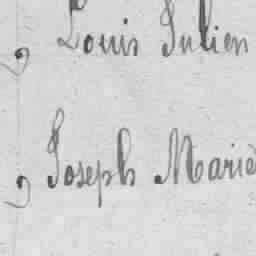 Louis Julien
Joseph Marie